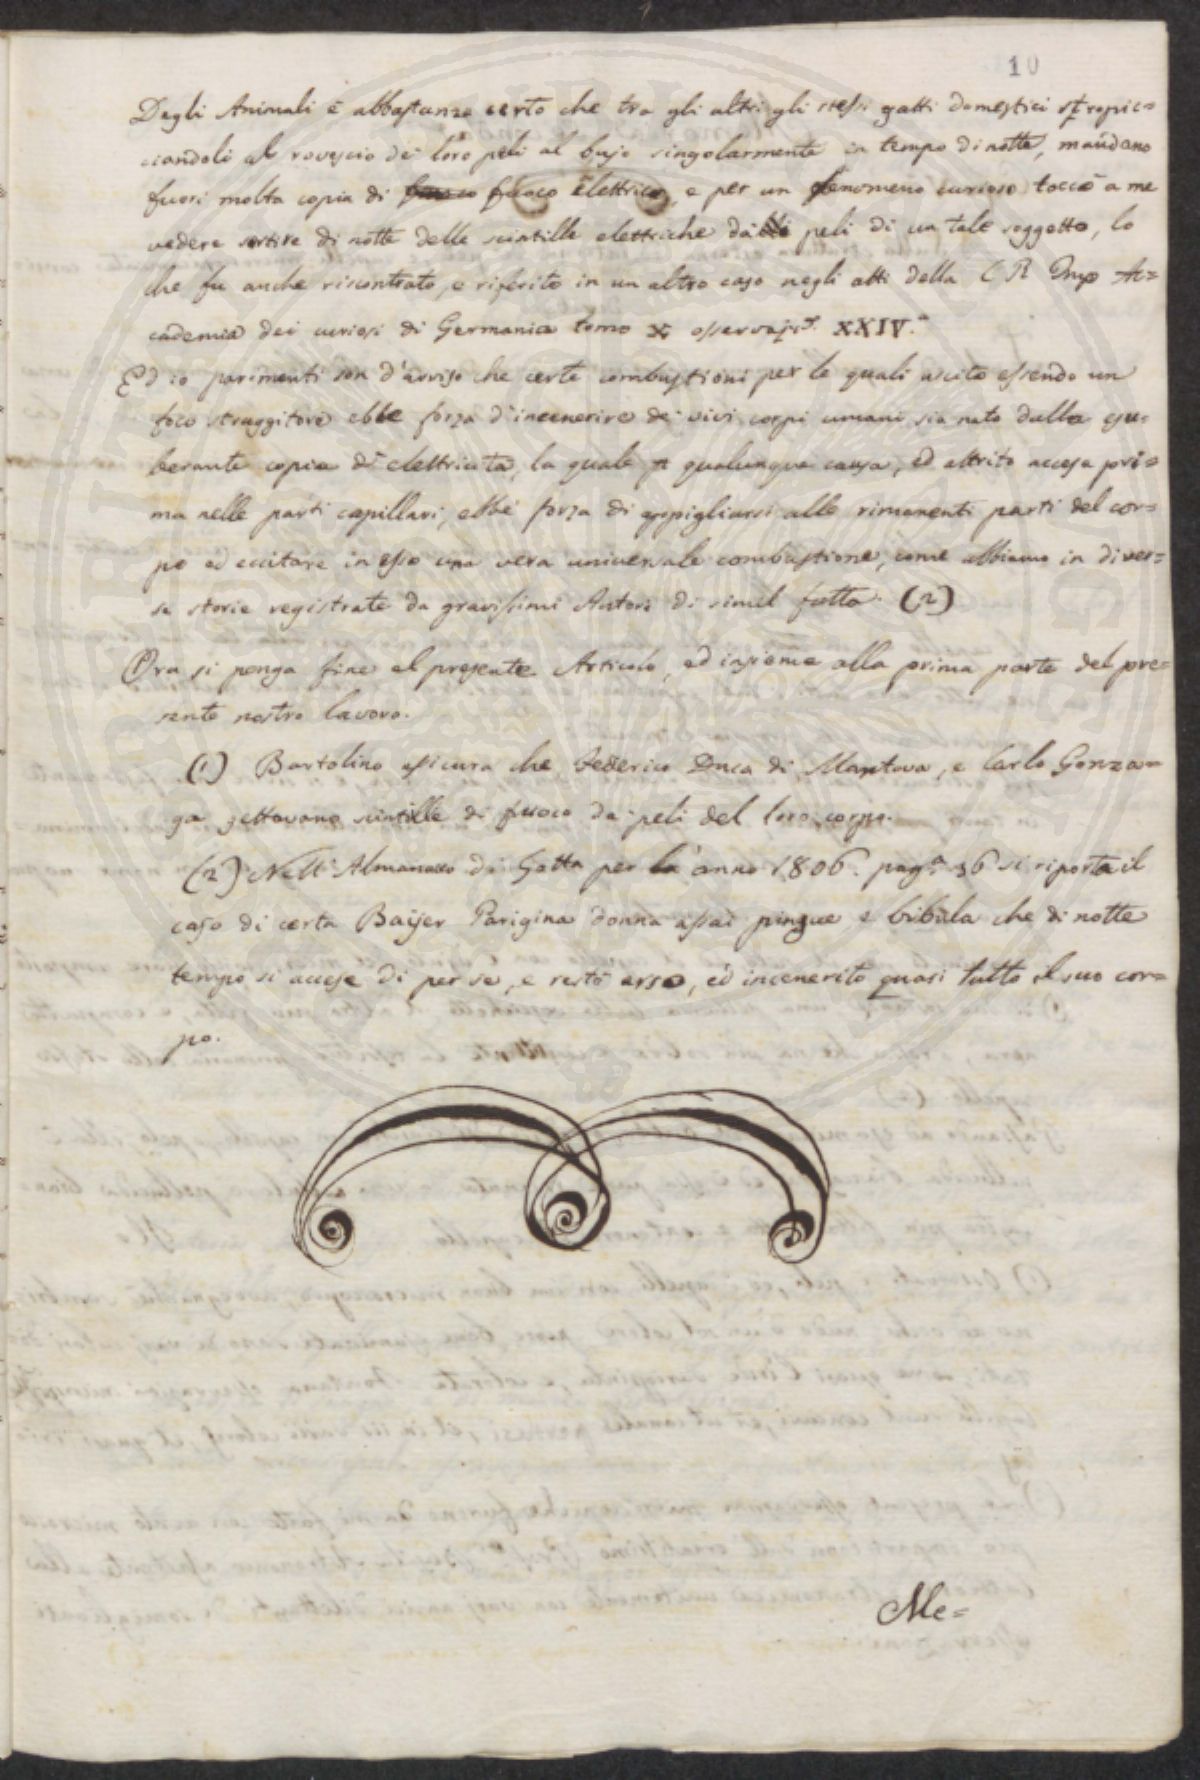 10
Degli Animali è abbastanza certo che tra gli altri gli stessi gatti domestici stropic=
ciandoli al rovescio dei loro peli al bujo singolarmente in tempo di notte, mandano
fuori molta copia di fuoco elettrico, e per un fenomeno curioso toccò a me
vedere sortire di notte delle scintille elettriche dalli peli di un tale soggetto, lo
che fu anche riscontrato, e riferito in un altro caso negli atti della C R Imp Ac=
cademia dei curiosi di Germania tomo X osservaz. XXIV.a
Ed io parimenti son d'avviso che certe combustioni per le quali uscito essendo un
foco struggitore ebbe forza d'incenerire de' vivi corpi umani sia nato dalla esu-
berante copia di elettricità, la quale p qualunque causa, ed attrito accesa pri=
ma nelle parti capillari, ebbe forza di appigliarsi alle rimanenti parti del cor=
po ed eccitare in esso una vera universale combustione, come abbiamo in diver=
se storie registrate da gravissimi Autori di simil fatto. (2)
Ora si ponga fine al presente Articolo, ed insieme alla prima parte del pre=
sente nostro lavoro.
(1) Bartolino assicura che Federico Duca di Mantova, e Carlo Gonza=
ga gettavano scintille di fuoco da peli del loro corpo.
(2) Nell'Almanacco di Gotta per l'anno 1806. pag.a 36 si riporta il
caso di certa Baijer Parigina donna assai pingue e bibula che di notte
tempo si accese di per se, e restò arso, ed incenerito quasi tutto il suo cor=
po.
Me=